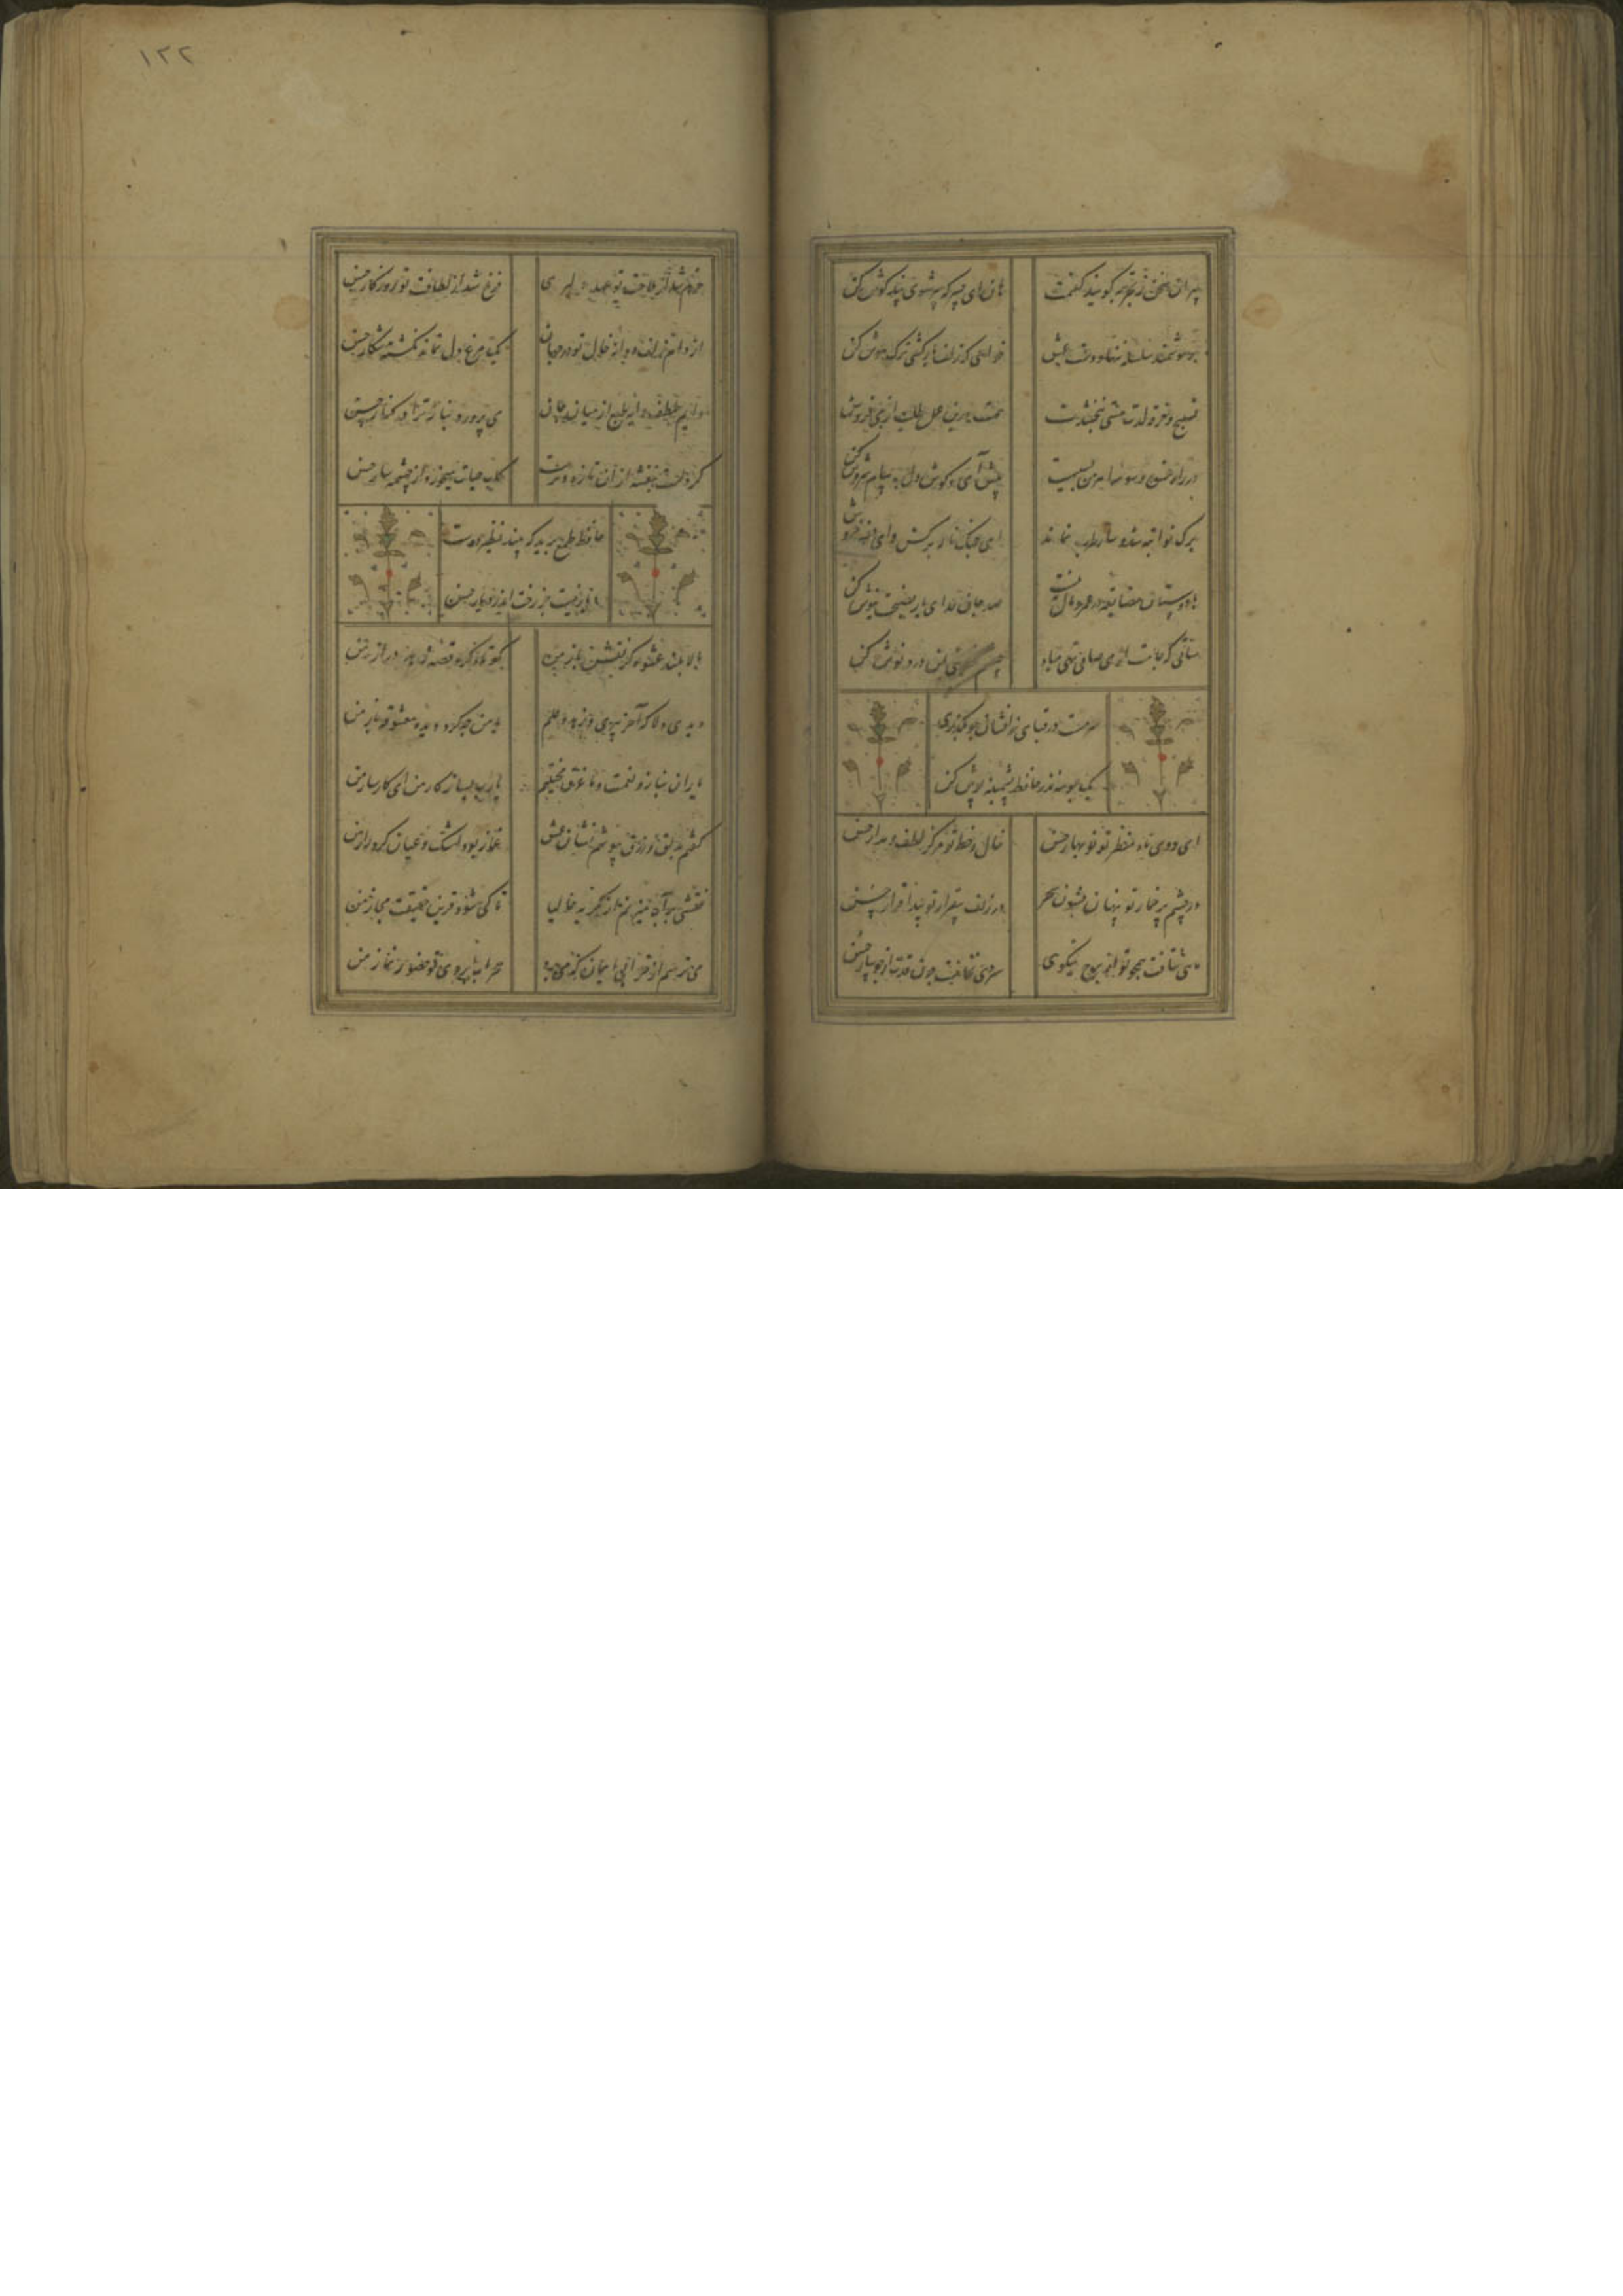 پیران سخن ز تجربه گویند گفتمت هان ای پسر که پیر شوی پند گوش کن
بر هوشمند سلسله ننهاد دست عشق خواهی که زلف یار کشی ترک هوش کن
تسبیح و خرقه لذت مستی نبخشدت همت درین عمل طلب از می فروش کن
در راه عشق وسوسه اهرمن بسیست پیش آی و گوش دل به پیام سروش کن
برگ نوا تبه شد و ساز طرب نماند ای چنگ ناله برکش و ای دف خروش کن
با دوستان مضایقه در عمر و مال نیست صد جان فدای یار نصیحت نیوش کن
ساقی که جامت از می صافی تهی مباد چشم عنایتی به من درد نوش کن
سرمست در قبای زرافشان چو بگذری
یک بوسه نذر حافظ پشمینه پوش کن
ای روی ماه منظر تو نوبهار حسن خال و خط تو مرکز لطف و مدار حسن
در چشم پر خمار تو پنهان فسون سحر در زلف بیقرار تو پیدا قرار حسن
ماهی نتافت همچو تو از برج نیکوی سروی نخاست چون قدت از جویبار حسن
۱۲۲
خرم شد از ملاحت تو عهد دلبری فرخ شد از لطافت تو روزگار حسن
از دام زلف و دانه خال تو در جهان یک مرغ دل نماند نگشته شکار حسن
دایم بلطف دایه طبع از میان جان می پرورد بناز ترا در کنار حسن
گرد لبت بنفشه از آن تازه و ترست کاب حیات میخورد از چشمه سار حسن
حافظ طمع برید که بیند نظیر دوست
دیار نیست جز رخت اندر دیار حسن
بالا بلند عشوه گر نقش باز من کوتاه کرد قصه زهد دراز من
دیدی دلا که آخر پیری و زهد و علم با من چه کرد دیده معشوقه باز من
گفتم بدلق زرق بپوشم نشان عشق غماز بود اشک و عیان کرد راز من
نقشی بر آب میزنم از گریه حالیا تا کی شود قرین حقیقت مجاز من
می ترسم از خرابی ایمان که می برد محراب ابروی تو حضور نماز من